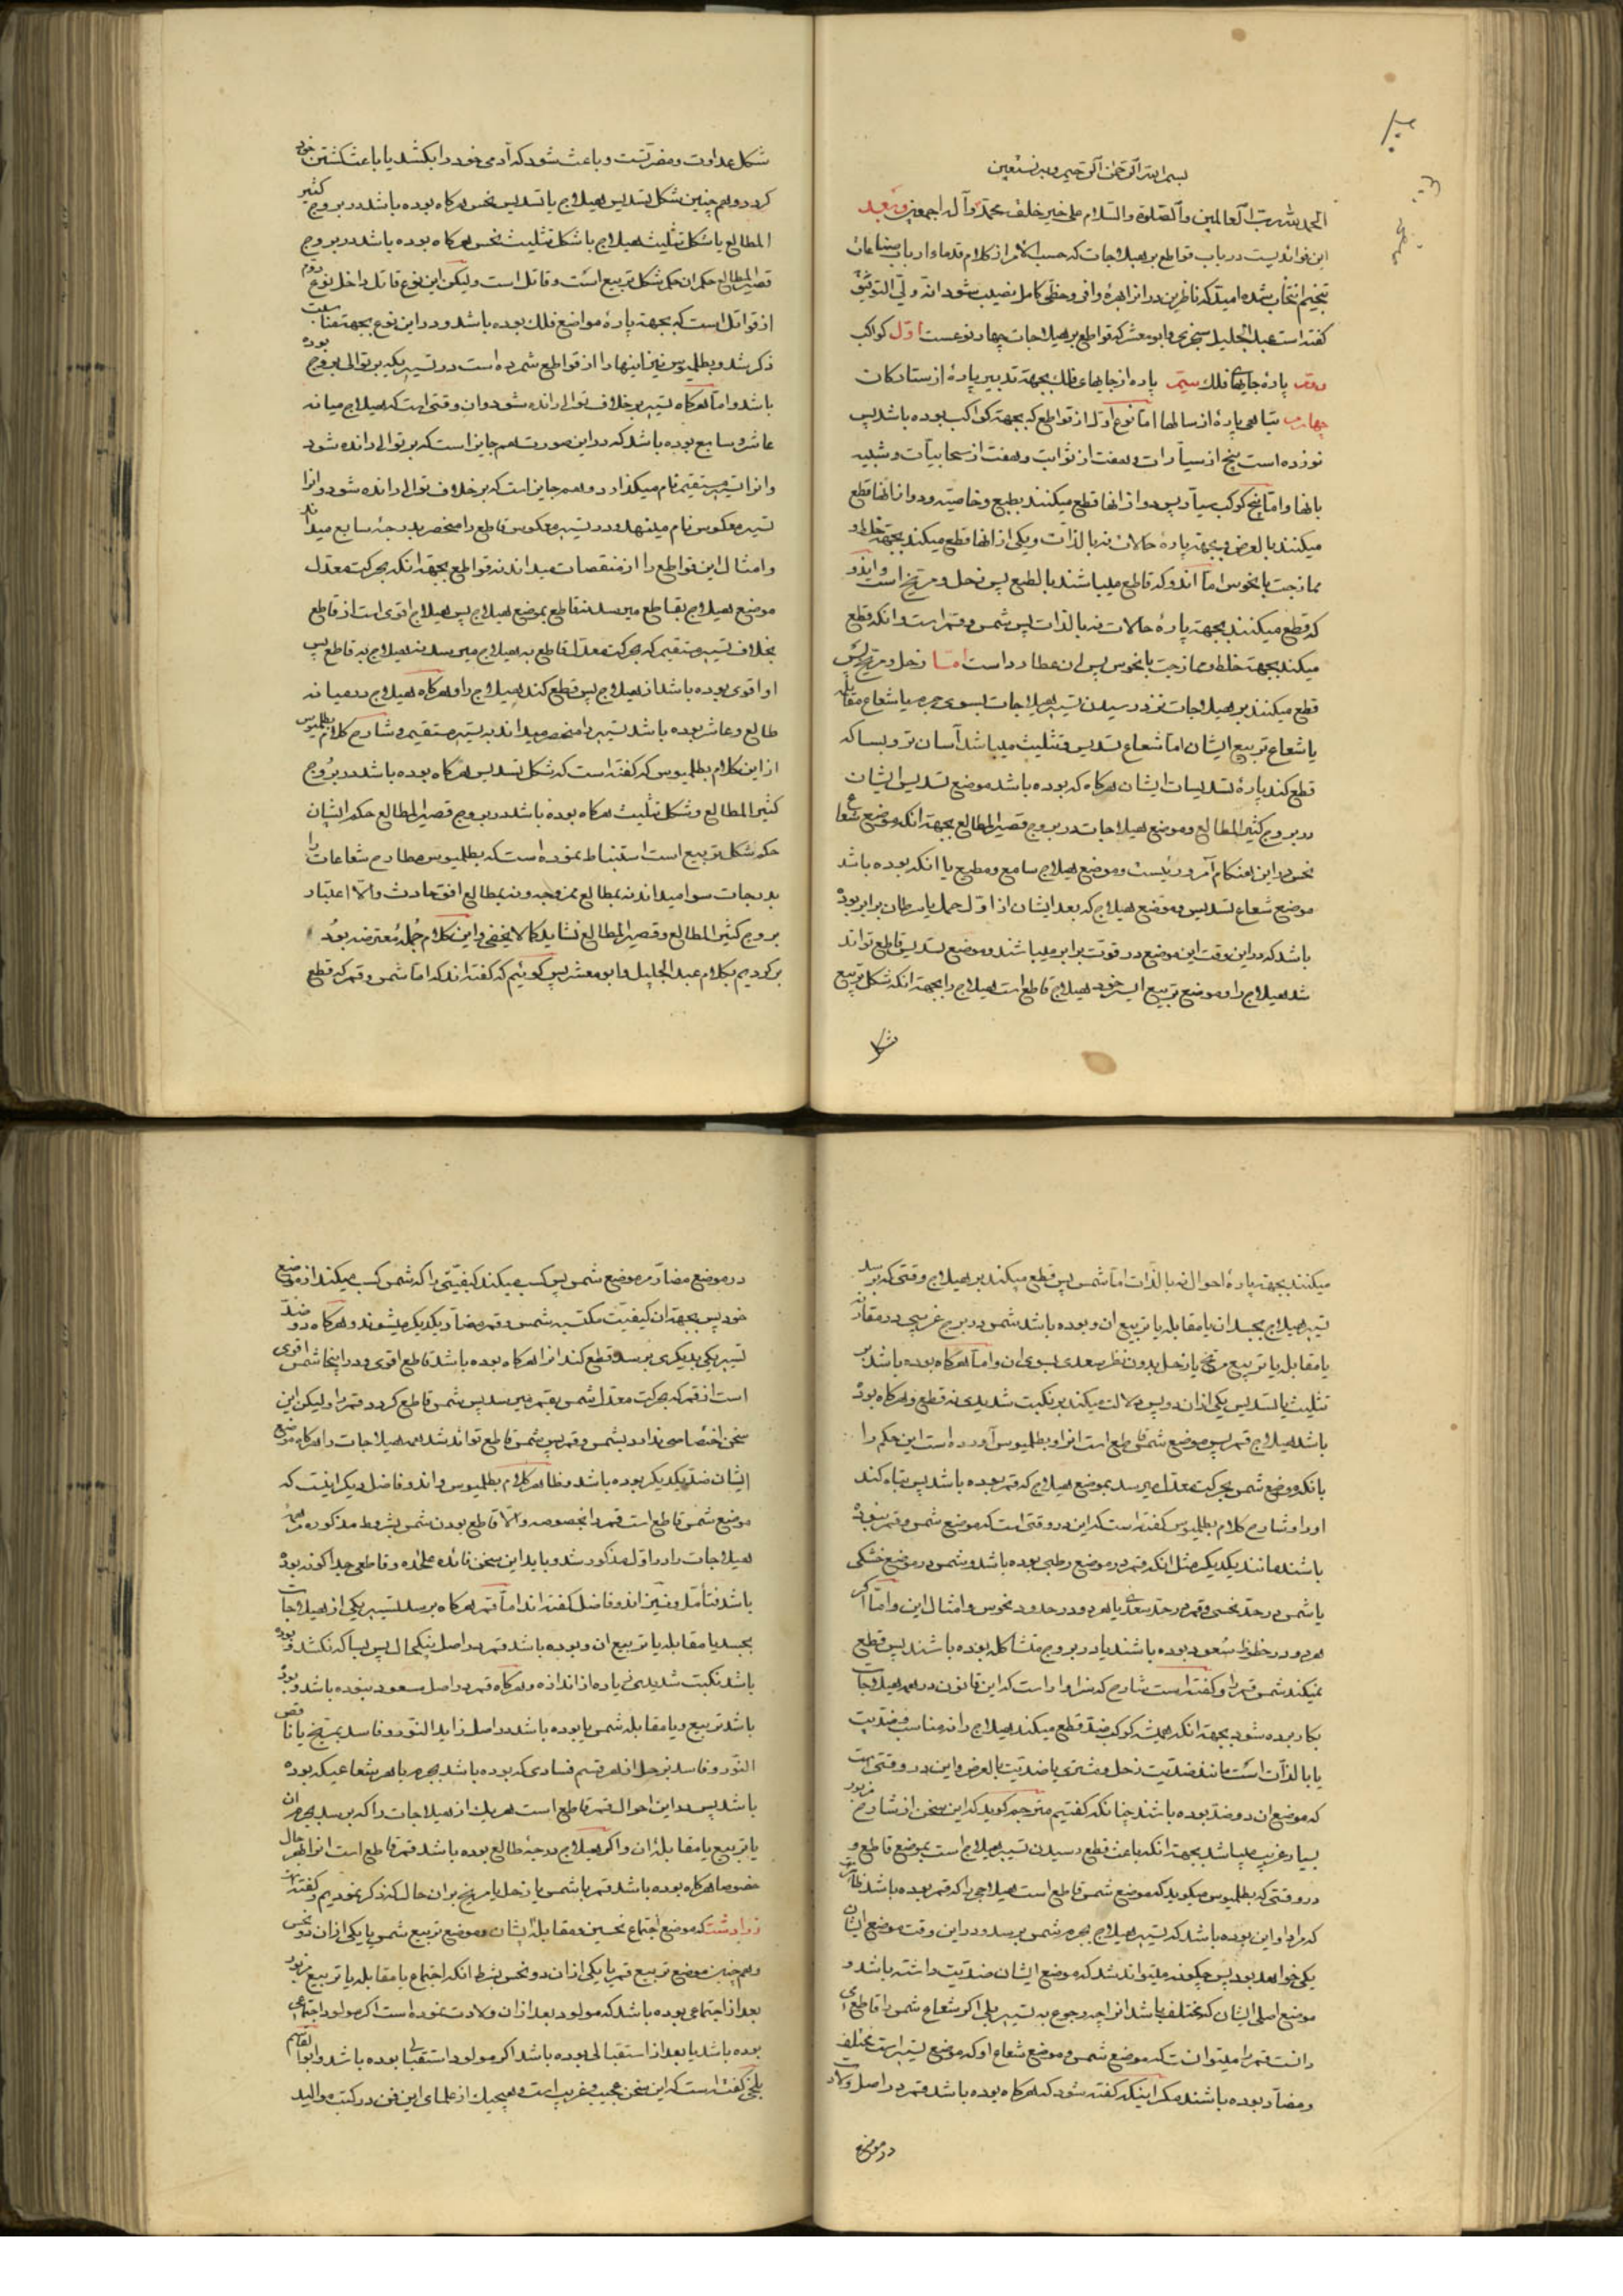 بسم الله الرحمن الرحیم وبه نستعین
الحمد لله رب العالمین والصلوة والسلام علی خیر خلقه محمد وآله اجمعین وبعد
این فوائدیست در باب قواطع بر هیلاجات که حسب الامر از کلام قدماء ارباب صناعات
تنجیم انتخاب شده امید که ناظرین در انرا بهرهٔ وافی وحظی کامل نصیب شود انه ولی التوفیق
کفته است عبد الجلیل سجزی وابومعشر که قواطع بر هیلاجات چهار نوعست اول کواکب
دویم پارهٔ جایهای فلک سیم پاره از جایهای فلک بجهة تدبیر پارهٔ از ستارکان
چهارم تباهی پارهٔ از سالها اما نوع اول از قواطع که بجهة کواکب بوده باشد پس
نوزده است پنج از سیارات وهفت از ثوابت وهفت از سحابیات وشبیه
بانها واما پنج کوکب سیار پس دو از انها قطع میکنند بطبع وخاصیت ودو از انها قطع
میکنند بالعرض وبجهة پارهٔ حالات نه بالذات ویکی از انها قطع میکند بجهة خلط و
ممازجت با نحوس اما اندو که قاطع میباشند بالطبع پس زحل ومریخ است واندو
که قطع میکنند بجهة پارهٔ حالات نه بالذات پس شمس وقمر است وانکه قطع
میکند بجهة خلط وممازجت با نحوس پس ان عطارد است اما زحل ومریخ پس
قطع میکنند بر هیلاجات نزد رسیدن تسییر هیلاجات بسوی جرم یا شعاع مقابله
یا شعاع تربیع ایشان اما شعاع تسدیس وتثلیث میباشد آسان تر وبسا که
قطع کند پارهٔ تسدیسات ایشان هرکاه که بوده باشد موضع تسدیس ایشان
در بروج کثیر المطالع وموضع هیلاجات در بروج قصیر المطالع بجهة انکه موضع شعاع
نحس در این هنکام آمر ورئیست وموضع هیلاج سامع ومطیع یا انکه بوده باشد
موضع شعاع تسدیس وموضع هیلاج که بعد ایشان از اول حمل یا سرطان برابر بوده
باشد که در این وقت این موضع در قوت برابر میباشند وموضع تسدیس قاطع تواند
شد هیلاج را وموضع تربیع ایسر خود هیلاج قاطع است هیلاج را بجهة انکه شکل تربیع
شکل
شکل عداوت ومضرتست وباعث شود که آدمی خود را بکشد یا باعث کشتن خود
کردد وهم چنین شکل تسدیس هیلاج یا تسدیس نحس هرکاه بوده باشد در بروج کثیر
المطالع یا شکل تثلیث هیلاج یا شکل تثلیث نحس هرکاه بوده باشد در بروج
قصیر المطالع حکم ان حکم شکل تربیع است وقاتل است ولیکن این نوع قاتل داخل نوع دوم
از قواتل است که بجهة پارهٔ مواضع فلک بوده باشد ودر این نوع بجهة مناسبت
ذکر شد وبطلیوس نیز اینها را از قواطع شمرده است در تسییریکه بر توالی بروج بوده
باشد واما هرکاه تسییر بر خلاف توالی رانده شود وان وقتی است که هیلاج میانه
عاشر وسابع بوده باشد که در این صورت هم جایز است که بر توالی رانده شود
وانرا تسییر مستقیم نام میکذارد وهم جایز است که بر خلاف توالی رانده شود وانرا
تسییر معکوس نام مینهد ودر تسییر معکوس قاطع را منحصر بدرجهٔ سابع میداند
وامثال این قواطع را از منقصات میداند نه قواطع بجهة انکه بحرکت معدل
موضع هیلاج بقاطع میرسد نه قاطع بموضع هیلاج پس هیلاج اقوی است از قاطع
بخلاف تسییر مستقیم که بحرکت معدل قاطع به هیلاج میرسد نه هیلاج به قاطع پس
او اقوی بوده باشد از هیلاج پس قطع کند هیلاج را وهرکاه هیلاج در میانه
طالع وعاشر بوده باشد تسییر را منحصر میداند به تسییر مستقیم وشارح کلام بطلیوس
از این کلام بطلیوس که کفته است که شکل تسدیس هرکاه بوده باشد در بروج
کثیر المطالع وشکل تثلیث هرکاه بوده باشد در بروج قصیر المطالع حکم ایشان
حکم شکل تربیع است استنباط نموده است که بطلیوس مطارح شعاعات را
بدرجات سوا میداند نه بمطالع ممزوجه ونه بمطالع افق حادث والا اعتبار
بروج کثیر المطالع وقصیر المطالع نشاید کما لا یخفی واین کلام جملهٔ معترضه بود
برکردیم بکلام عبد الجلیل وابومعشر پس کوئیم که کفته اند که اما شمس وقمر که قطع
میکنند بجهة پارهٔ احوال نه بالذات اما شمس پس قطع میکند بر هیلاج وقتی که برسد
تسییر هیلاج بجسد ان یا مقابله یا تربیع ان وبوده باشد شمس در برج غریبی در مقارنه
یا مقابله یا تربیع مریخ یا زحل بدون نظر سعدی بسوی ان واما هرکاه بوده باشد بر
تثلیث یا تسدیس یکی از ان دو پس دلالت میکند بر نکبت شدیدی نه قطع وهرکاه بوده
باشد هیلاج قمر پس موضع شمس قاطع است انرا وبطلیوس آورده است این حکم را
بانکه موضع شمس بحرکت معدل میرسد بموضع هیلاج که قمر بوده باشد پس تباه کند
او را وشارح کلام بطلیوس کفته است که این در وقتی است که موضع شمس وقمر نبوده
باشند مانند یکدیکر مثل انکه قمر در موضع رطبی بوده باشد وشمس در موضع خشکی
یا شمس در حد نحسی وقمر در حد سعدی یا هر دو در حدود نحوس وامثال این واما اکر
هر دو در خطوط سعود بوده باشند یا در بروج متشاکله بوده باشند پس قطع
نمیکند شمس قمر را وکفته است شارح که سزاوار است که این قانون در همه هیلاجات
بکار برده شود بجهة انکه همیشه کوکب ضد قطع میکند هیلاج را نه مناسب وضدیت
یا بالذات است مانند ضدیت زحل ومشتری یا ضدیت بالعرض واین در وقتی است
که موضع ان دو ضد بوده باشند چنانکه کفتیم مترجم کوید که این سخن از شارح مزبور
بسیار غریب میباشد بجهة انکه باعث قطع رسیدن تسییر هیلاج است بموضع قاطع و
در وقتی که بطلیوس میکوید که موضع شمس قاطع است هیلاجی را که قمر بوده باشد ظاهر
که مراد او این بوده باشد که تسییر هیلاج بجرم شمس برسد ودر این وقت موضع ایشان
یکی خواهد بود پس چکونه میتواند شد که موضع ایشان ضدیت داشته باشد و
موضع اصلی ایشان که مختلف باشد انرا چه رجوع به تسییر بلی اکر شعاع شمس را قاطع
دانست قمر را میتوانست که موضع شمس وموضع شعاع او که موضع تسییر است مختلف
ومضاد بوده باشند مکر اینکه کفته شود که هرکاه بوده باشد قمر در اصل ولادت
در موضع
در موضع مضاد مر موضع شمس پس کسب میکند کیفیتی را که شمس کسب میکند از موضع
خود پس بجهة ان کیفیت مکتسبه شمس وقمر مضاد یکدیکر میشوند وهرکاه دو ضد
تسییر یکی بدیکری برسد قطع کند انرا هرکاه بوده باشد قاطع اقوی ودر اینجا شمس اقوی
است از قمر که بحرکت معدل شمس بقمر میرسد پس شمس قاطع کردد قمر را ولیکن این
سخن اختصاصی ندارد بشمس وقمر پس شمس قاطع تواند شد همه هیلاجات را هرکاه موضع
ایشان ضد یکدیکر بوده باشد وظاهر کلام بطلیوس واندو فاضل دیکر اینست که
موضع شمس قاطع است قمر را بخصوصه والا قاطع بودن شمس بشروط مذکوره مر همهٔ
هیلاجات را در اول مذکور شد وباید این سخن فائده علیحده وقاطعی جداکونه بوده
باشد فتأمل ونیز اندو فاضل کفته اند اما قمر هرکاه برسد تسییر یکی از هیلاجات
بجسد یا مقابله یا تربیع ان وبوده باشد قمر در اصل نیکحال پس بسا که نکشد وبوده
باشد نکبت شدیدی زیاده از اندازه وهرکاه قمر در اصل مسعود نبوده باشد وبوده
باشد تربیع ویا مقابله شمس یا بوده باشد در اصل زاید النور وفاسد بمریخ یا ناقص
النور وفاسد بزحل از هر قسم فسادی که بوده باشد بجرم یا هر شعاعیکه بوده
باشد پس در این احوال قمر قاطع است هر یک از هیلاجات را که برسد بجرم ان
یا تربیع یا مقابلهٔ ان واکر هیلاج درجهٔ طالع بوده باشد قمر قاطع است انرا بهر حال
خصوصا هرکاه بوده باشد قمر یا شمس یا زحل یا مریخ بر ان حال که ذکر نمودیم وکفته است
زرادشت که موضع اجتماع نحسین ومقابلهٔ ایشان وموضع تربیع شمس یا یکی از ان دو نحس
وهم چنین موضع تربیع قمر یا یکی از ان دو نحس بشرط انکه اجتماع یا مقابله یا تربیع مزبور
بعد از اجتماعی بوده باشد که مولود بعد از ان ولادت نموده است اکر مولود اجتماعی
بوده باشد یا بعد از استقبالی بوده باشد اکر مولود استقبالی بوده باشد وابوالقاسم
بلخی کفته است که این سخن عجیب وغریب است وهیچیک از علمای این فن در کتب موالید